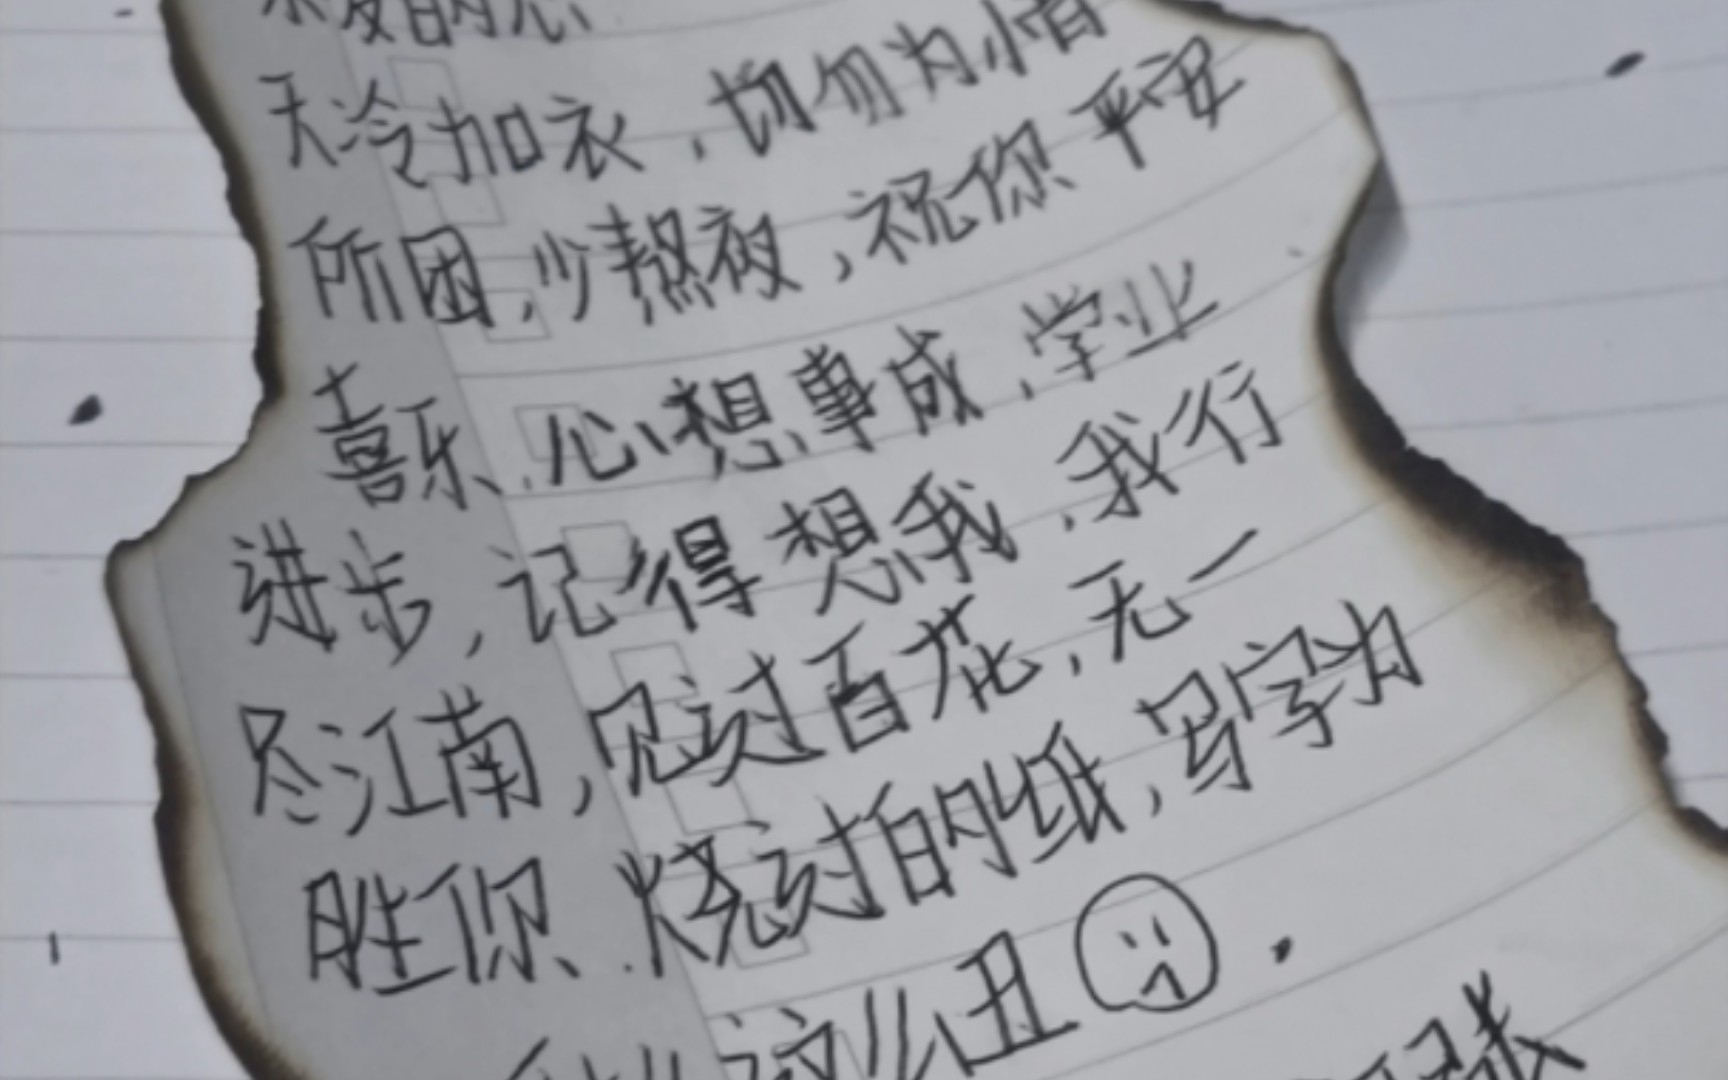 亲爱的您
天冷加衣，切勿为小情
所困，少熬夜，祝你平安
喜乐.心想事成，学业
进步，记得想我，我行
尽江南，见过百花，无一
胜你.烧过的纸，写字为
这么丑